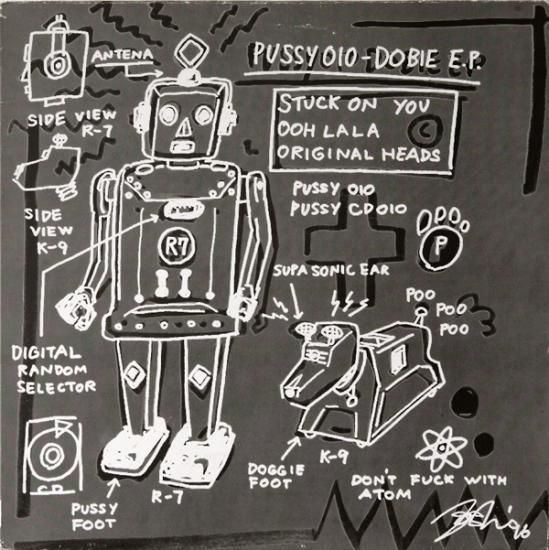 PUSSY 010 - DOBIE E.P.
ANTENA
STUCK ON YOU
OOH LALA
ORIGINAL HEADS
C
SIDE VIEW
R-7
PUSSY 010
PUSSY CD010
P
SIDE
VIEW
K-9
R7
SUPA SONIC EAR
POO
POO
POO
DIGITAL
RANDOM
SELECTOR
K-9
DOGGIE
FOOT
DON'T FUCK WITH
ATOM
R-7
PUSSY
FOOT
'96